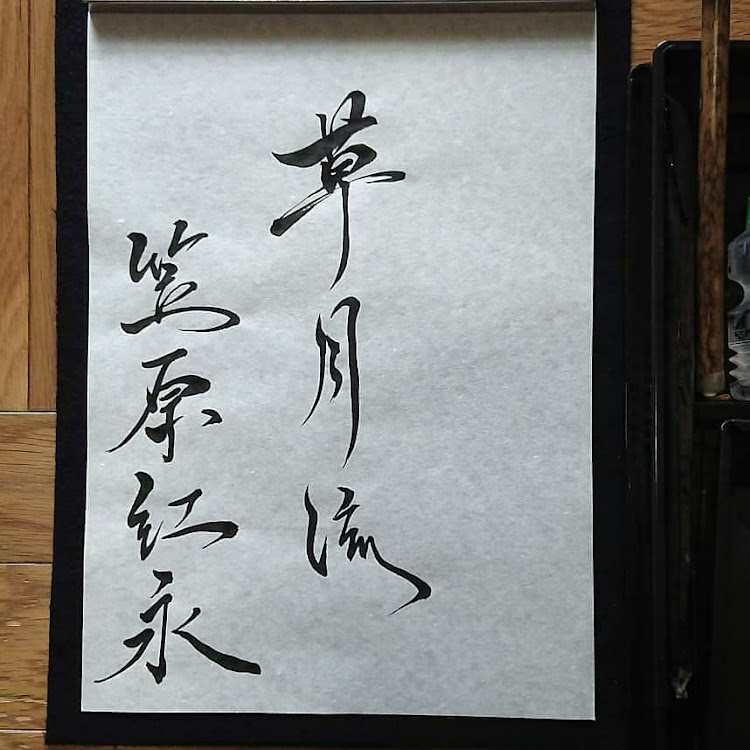 草月流
笠原紅永